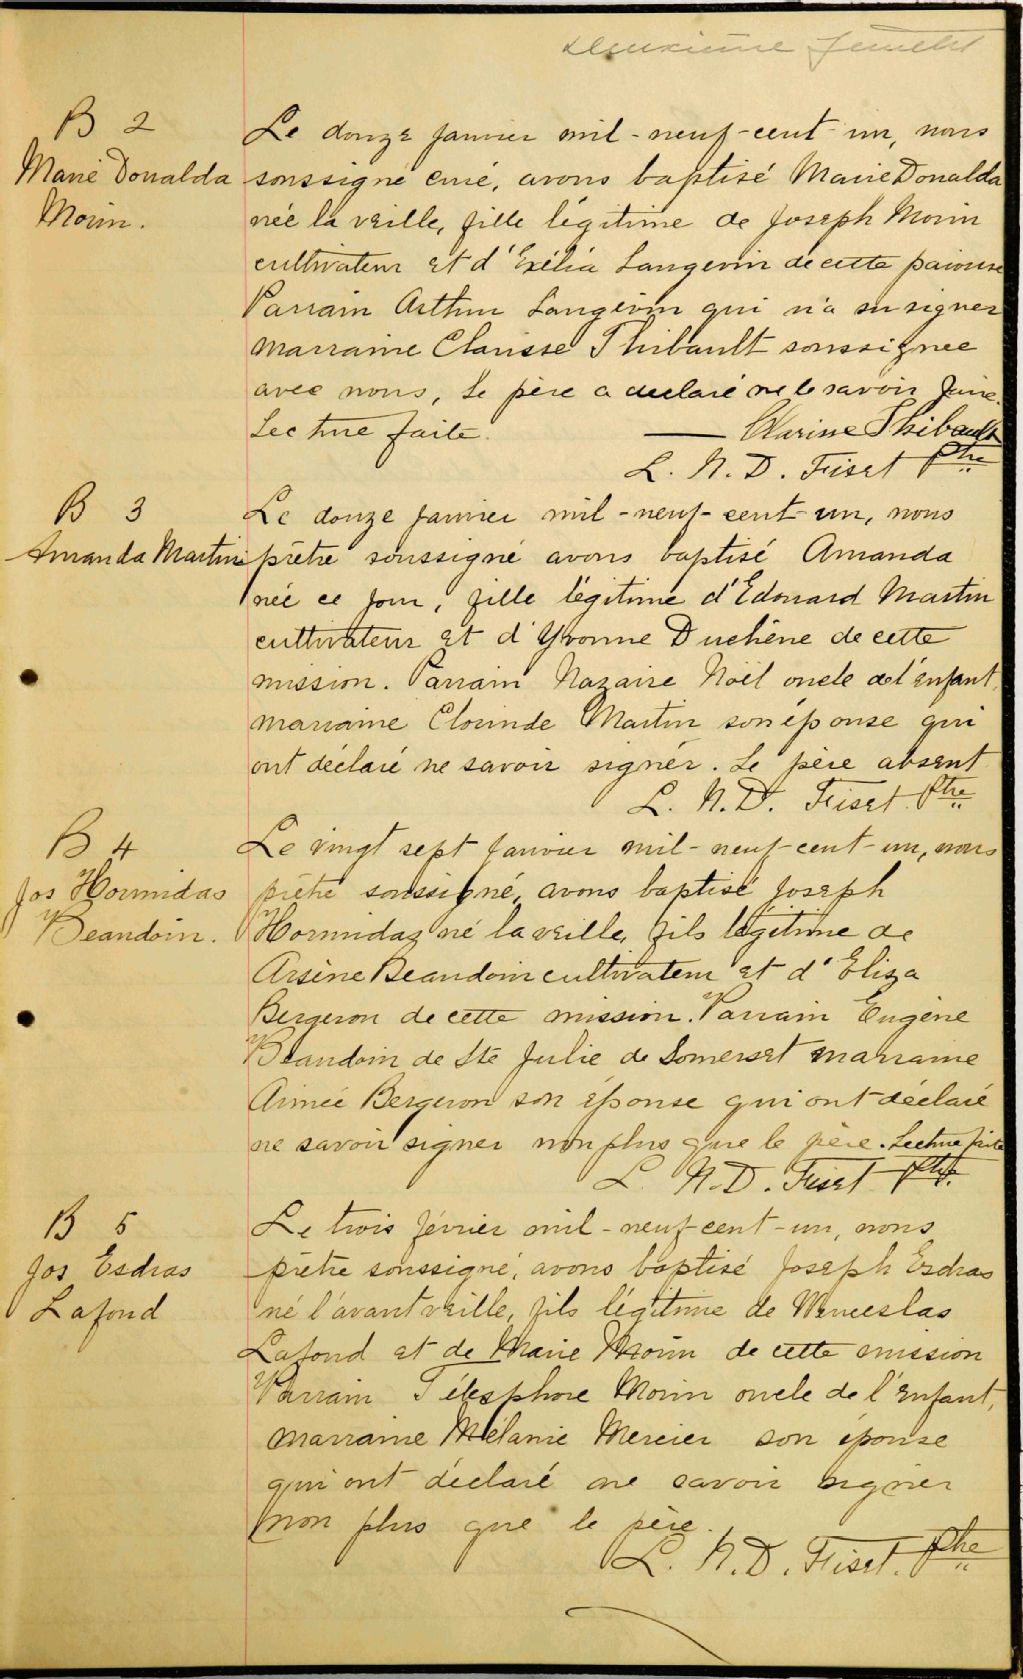 Deuxième feuillet
B 2
Marie Donalda
Morin.
Le douze janvier mil-neuf-cent-un, nous
soussigné curé, avons baptisé Marie Donalda
née la veille, fille légitime de Joseph Morin
cultivateur et d'Exélia Langevin de cette paroisse
Parrain Arthur Langevin qui n'a su signer
marraine Clarisse Thibault soussignée
avec nous, le père a déclaré ne le savoir faire.
Lecture faite. Clarisse Thibault
L. N. D. Fiset Ptre
B 3
Amanda Martin
Le douze janvier mil-neuf-cent-un, nous
prêtre soussigné avons baptisé Amanda
née ce jour, fille légitime d'Edouard Martin
cultivateur et d'Yvonne Duchêne de cette
mission. Parrain Nazaire Noël oncle de l'enfant,
marraine Clorinde Martin son épouse qui
ont déclaré ne savoir signer. Le père absent
L. N. D. Fiset Ptre
B 4
Jos Hormidas
Beaudoin.
Le vingt sept janvier mil-neuf-cent-un, nous
prêtre soussigné, avons baptisé Joseph
Hormidas né la veille, fils légitime de
Arsène Beaudoin cultivateur et d'Eliza
Bergeron de cette mission. Parrain Eugène
Beaudoin de Ste Julie de Somerset marraine
Aimée Bergeron son épouse qui ont déclaré
ne savoir signer non plus que le père. Lecture faite
L. N. D. Fiset Ptre.
B 5
Jos Esdras
Lafond
Le trois février mil-neuf-cent-un, nous
prêtre soussigné, avons baptisé Joseph Esdras
né l'avant veille, fils légitime de Wenceslas
Lafond et de Marie Morin de cette mission
Parrain Télesphore Morin oncle de l'enfant,
marraine Mélanie Mercier son épouse
qui ont déclaré ne savoir signer
non plus que le père.
L. N. D. Fiset. Ptre